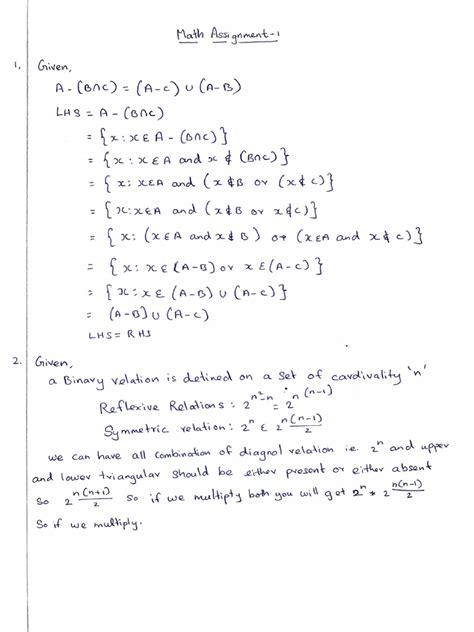 Math Assignment-1
1. Given,
A - (B∩C) = (A-C) ∪ (A-B)
LHS = A - (B∩C)
= {x : x ∈ A - (B∩C)}
= {x : x ∈ A and x ∉ (B∩C)}
= {x : x ∈ A and (x ∉ B or (x ∉ C)}
= {x : x ∈ A and (x ∉ B or x ∉ C)}
= {x : (x ∈ A and x ∉ B) or (x ∈ A and x ∉ C)}
= {x : x ∈ (A-B) or x ∈ (A-C)}
= {x : x ∈ (A-B) ∪ (A-C)}
= (A-B] ∪ (A-C)
LHS = RHS
2. Given,
a Binary relation is defined on a set of cardivality 'n'
Reflexive Relations : 2^(n²-n) = 2^(n(n-1))
Symmetric relation : 2^n ε 2^(n(n-1)/2)
we can have all combination of diagnol relation i.e. 2^n and upper
and lower triangular should be either present or either absent
So 2^(n(n+1)/2) so if we multipty both you will get 2^n * 2^(n(n-1)/2)
So if we multiply.